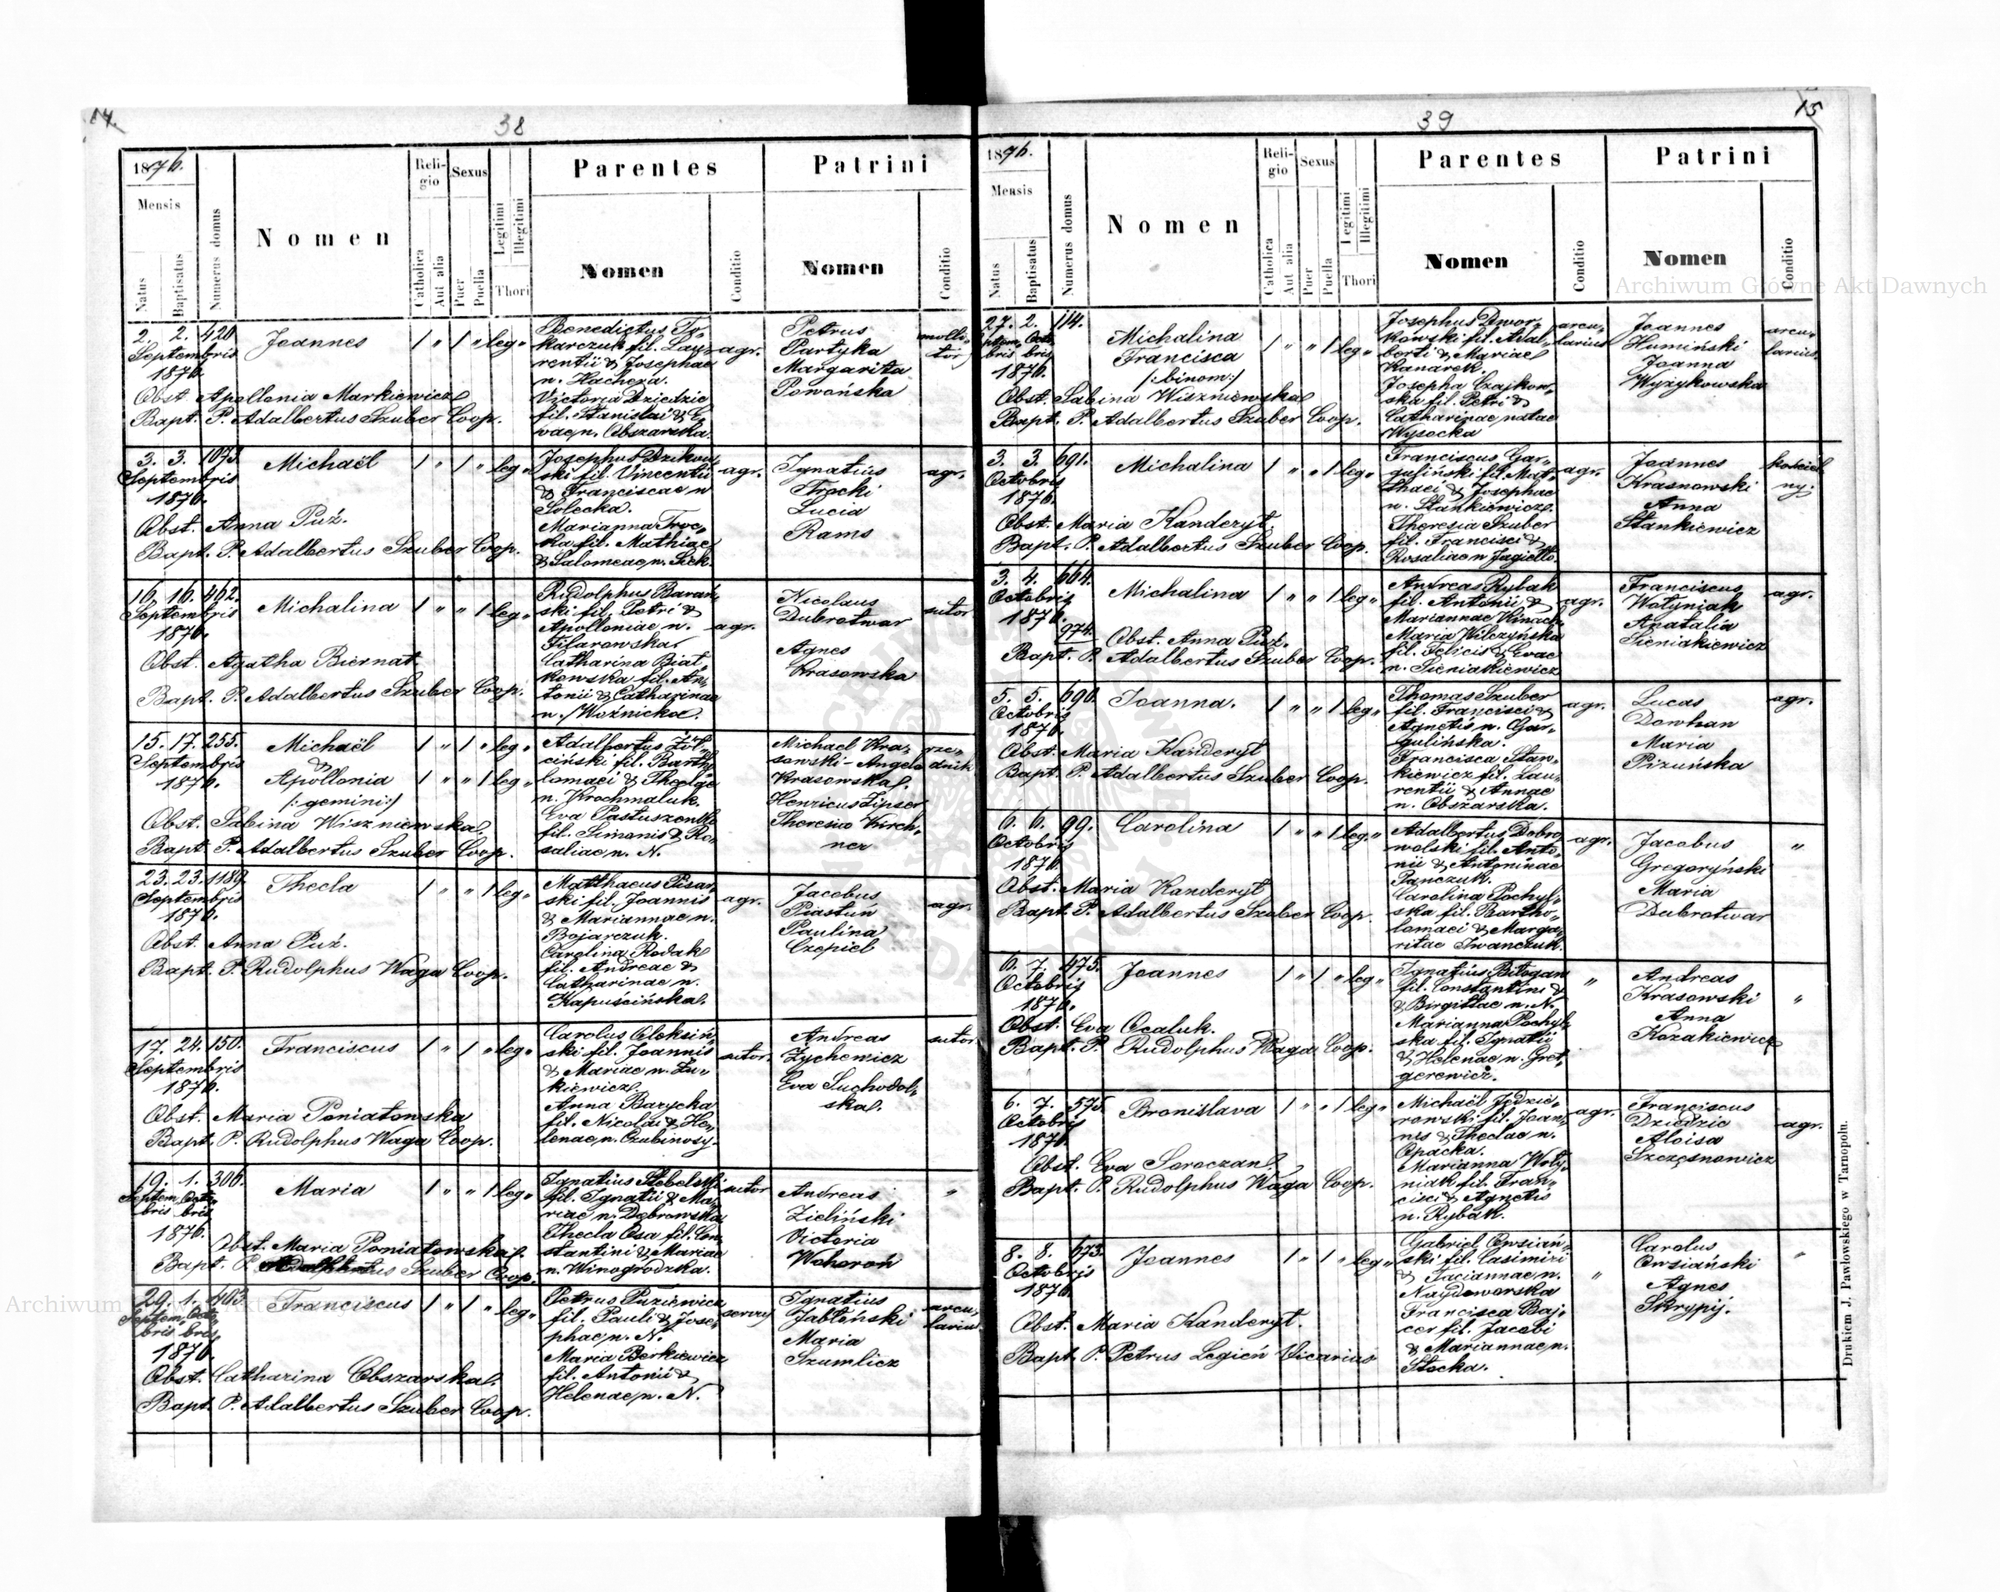 14.
38
1876.
Mensis
Natus
Baptisatus
Numerus domus
Nomen
Religio
Catholica
Aut alia
Sexus
Puer
Puella
Legitimi
Illegitimi
Thori
Parentes
Nomen
Conditio
Patrini
Nomen
Conditio
2. 2. 420
Septembris
1876.
Joannes
1 " 1 " leg "
Benedictus
karczuk fil. Lau-
rentii & Josephae
n. Hachera.
Victoria Dziedzic
fil. Stanislai & E-
vae n. Obszarska.
agr.
Petrus
Partyka
Margarita
Powońska
Obst. Apollonia Markiewicz
Bapt. P. Adalbertus Szuber Coop.
3. 3. 1073
Septembris
1876.
Michaël
1 " 1 " leg "
Josephus Dzikow-
ski fil. Vincentii
& Franciscae n
Solecka.
Marianna Troc-
ka fil. Mathiae
& Salomeae n. Sick.
agr.
Ignatius
Trocki
Lucia
Rams
agr.
Obst. Anna Puź.
Bapt. P. Adalbertus Szuber Coop.
16. 16. 462.
Septembris
1876.
Michalina
1 " " 1 leg "
Rudolphus Barań-
ski fil. Petri &
Apolloniae n.
Filarowska
Catharina Biał-
kowska fil. An-
tonii & Catharinae
n. Woźnicka.
agr.
Nicolaus
Dubrotwar
Agnes
Krasowska
sutor
Obst. Agatha Biernat.
Bapt. P. Adalbertus Szuber Coop.
15. 17. 255.
Septembris
1876.
Michaël
&
Apollonia
/:gemini:/
1 " 1 " leg "
1 " " 1 leg "
Adalbertus Żół-
ciński fil. Barth-
lomaei & Theclae
n. Krochmaluk.
Eva Pastuszenko
fil. Simonis & Ro-
saliae n. N.
Michael Kra-
sowski - Angela
Krasowska.
Henricus Zipser
Theresia Kirch-
ner
Obst. Sabina Wiszniewska.
Bapt. P. Adalbertus Szuber Coop.
23. 23. 1189.
Septembris
1876.
Thecla
1 " " 1 leg "
Matthaeus Pisar-
ski fil. Joannis
& Mariannae n.
Bojarczuk.
Carolina Rodak
fil. Andreae &
Catharinae n.
Kapuścińska.
agr.
Jacobus
Piastuń
Paulina
Czepiel
agr.
Obst. Anna Puź.
Bapt. P. Rudolphus Waga Coop.
17. 24. 150.
Septembris
1876.
Franciscus
1 " 1 " leg "
Carolus Oleksiń-
ski fil. Joannis
& Mariae n. Łu-
kiewicz.
Anna Barycka
fil. Nicolai & He-
lenae n. Czubinosy.
sutor.
Andreas
Żychewicz
Eva Suchodol-
ska.
sutor.
Obst. Maria Poniatowska
Bapt. P. Rudolphus Waga Coop.
19. 1. 306.
Septem- Octo-
bris bris
1876.
Maria
1 " " 1 leg "
Ignatius Stebelski
fil. Ignatii & Ma-
riae n. Dębrowska
Thecla Osa fil. Con-
stantini & Mariae
n. Winogrodzka.
sutor
Andreas
Zieliński
Victoria
Woheroń
"
Obst. Maria Poniatowska.
Bapt. P. Adalbertus Szuber Coop.
29. 1. 403.
Septem- Octo-
bris bris
1876.
Franciscus
1 " 1 " leg "
Petrus Puziewicz
fil. Pauli & Jose-
phae n. N.
Maria Berkiewicz
fil. Antonii &
Helenae n. N.
servus
Ignatius
Jabłoński
Maria
Szumlicz
arcu-
larius
Obst. Catharina Obszarska.
Bapt. P. Adalbertus Szuber Coop.
15
39
1876.
Mensis
Natus
Baptisatus
Numerus domus
Nomen
Religio
Catholica
Aut alia
Sexus
Puer
Puella
Legitimi
Illegitimi
Thori
Parentes
Nomen
Conditio
Patrini
Nomen
Conditio
27. 2. 114.
Septem- Octo-
bris bris
1876.
Michalina
Francisca
/:binom:/
1 " " 1 leg "
Josephus Dwor-
kowski fil. Adal-
berti & Mariae
Kanarek.
Josepha Czajkow-
ska fil. Petri &
Catharinae natae
Wysocka
arcu-
larius
Joannes
Humiński
Joanna
Wyżykowska
arcu-
larius
Obst. Sabina Wiszniewska
Bapt. P. Adalbertus Szuber Coop.
3. 3. 691.
Octobris
1876.
Michalina
1 " " 1 leg "
Franciscus Gar-
guliński fil. Mat-
thaei & Josephae
n. Stankiewicz.
Theresia Szuber
fil. Francisci &
Rosaliae n Jagiełło.
agr.
Joannes
Krasnowski
Anna
Stankiewicz
kościel-
ny.
Obst. Maria Kanderyt.
Bapt. P. Adalbertus Szuber Coop.
3. 4. 664.
Octobris
1876.
974.
Michalina
1 " " 1 leg "
Andreas Rybak
fil. Antonii &
Mariannae Kinach
Maria Wilczyńska
fil. Felicis & Evae
n. Sieniakiewicz
agr.
Franciscus
Wołyniak
Anatalia
Sieniakiewicz
agr.
Obst. Anna Puź.
Bapt. P. Adalbertus Szuber Coop.
5. 5. 690.
Octobris
1876.
Joanna.
1 " " 1 leg "
Thomas Szuber
fil. Francisci &
Agnetis n. Gar-
gulińska.
Francisca Stan-
kiewicz fil. Lau-
rentii & Annae
n. Obszarska.
agr.
Lucas
Dowhan
Maria
Pizuńska
agr.
Obst. Maria Kanderyt
Bapt. P. Adalbertus Szuber Coop.
6. 6. 99.
Octobris
1876.
Carolina
1 " " 1 leg "
Adalbertus Dobro-
wolski fil. Anto-
nii & Antoninae
Panczuk.
Carolina Pochyl-
ska fil. Bartho-
lomaei & Marga-
ritae Iwanczuk.
agr.
Jacobus
Gregoryński
Maria
Dubrotwar
"
Obst. Maria Kanderyt
Bapt. P. Adalbertus Szuber Coop.
6. 7. 475.
Octobris
1876.
Joannes
1 " 1 " leg "
Ignatius Bitogan
fil. Constantini &
& Birgittae n. N.
Marianna Pochyl-
ska fil. Ignatii
& Helenae n. Gret-
gerewicz.
"
Andreas
Krasowski
Anna
Kozakiewicz
"
Obst. Eva Ocaluk.
Bapt. P. Rudolphus Waga Coop.
6. 7. 575.
Octobris
1876.
Bronislava
1 " " 1 leg "
Michaël Jędzie-
rowski fil. Joan-
nis & Theclae n.
Opacka.
Marianna Woły-
niak fil. Fran-
cisci & Agnetis
n. Rybak.
agr.
Franciscus
Dziedzic
Aloisa
Szczęsnowicz
agr.
Obst. Eva Soroczan.
Bapt. P. Rudolphus Waga Coop.
8. 8. 673.
Octobris
1876.
Joannes
1 " 1 " leg "
Gabriel Owsiań-
ski fil. Casimiri
& Taciannae n.
Naydoworska
Francisca Baj-
cer fil. Jacobi
& Mariannae n.
Stocka.
"
Carolus
Owsiański
Agnes
Skrypij.
"
Obst. Maria Kanderyt.
Bapt. P. Petrus Legień Vicarius
Drukiem J. Pawłowskiego w Tarnopolu.
Archiwum Główne Akt Dawnych